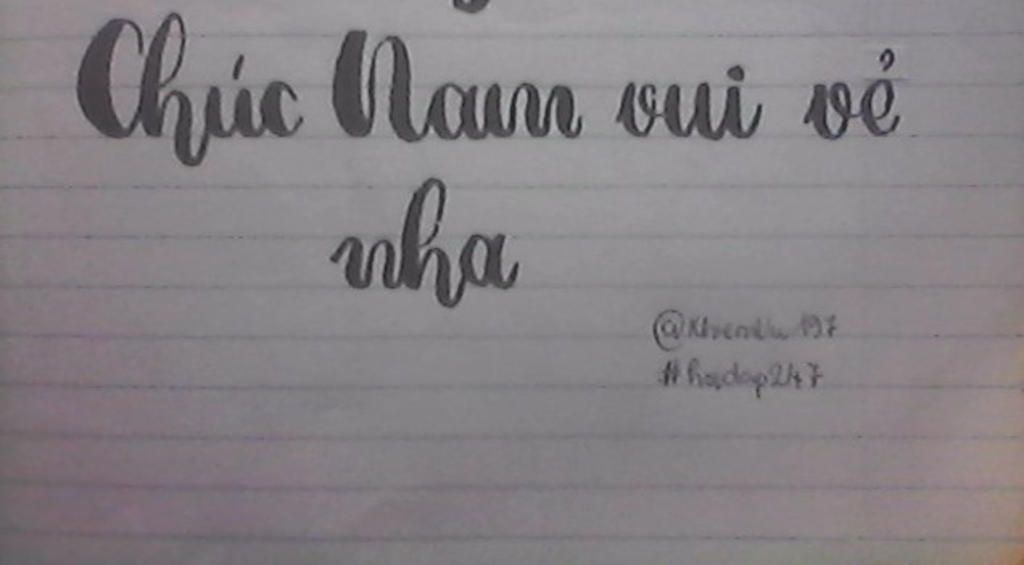 Chúc Nam vui vẻ
nha
#hoidap247